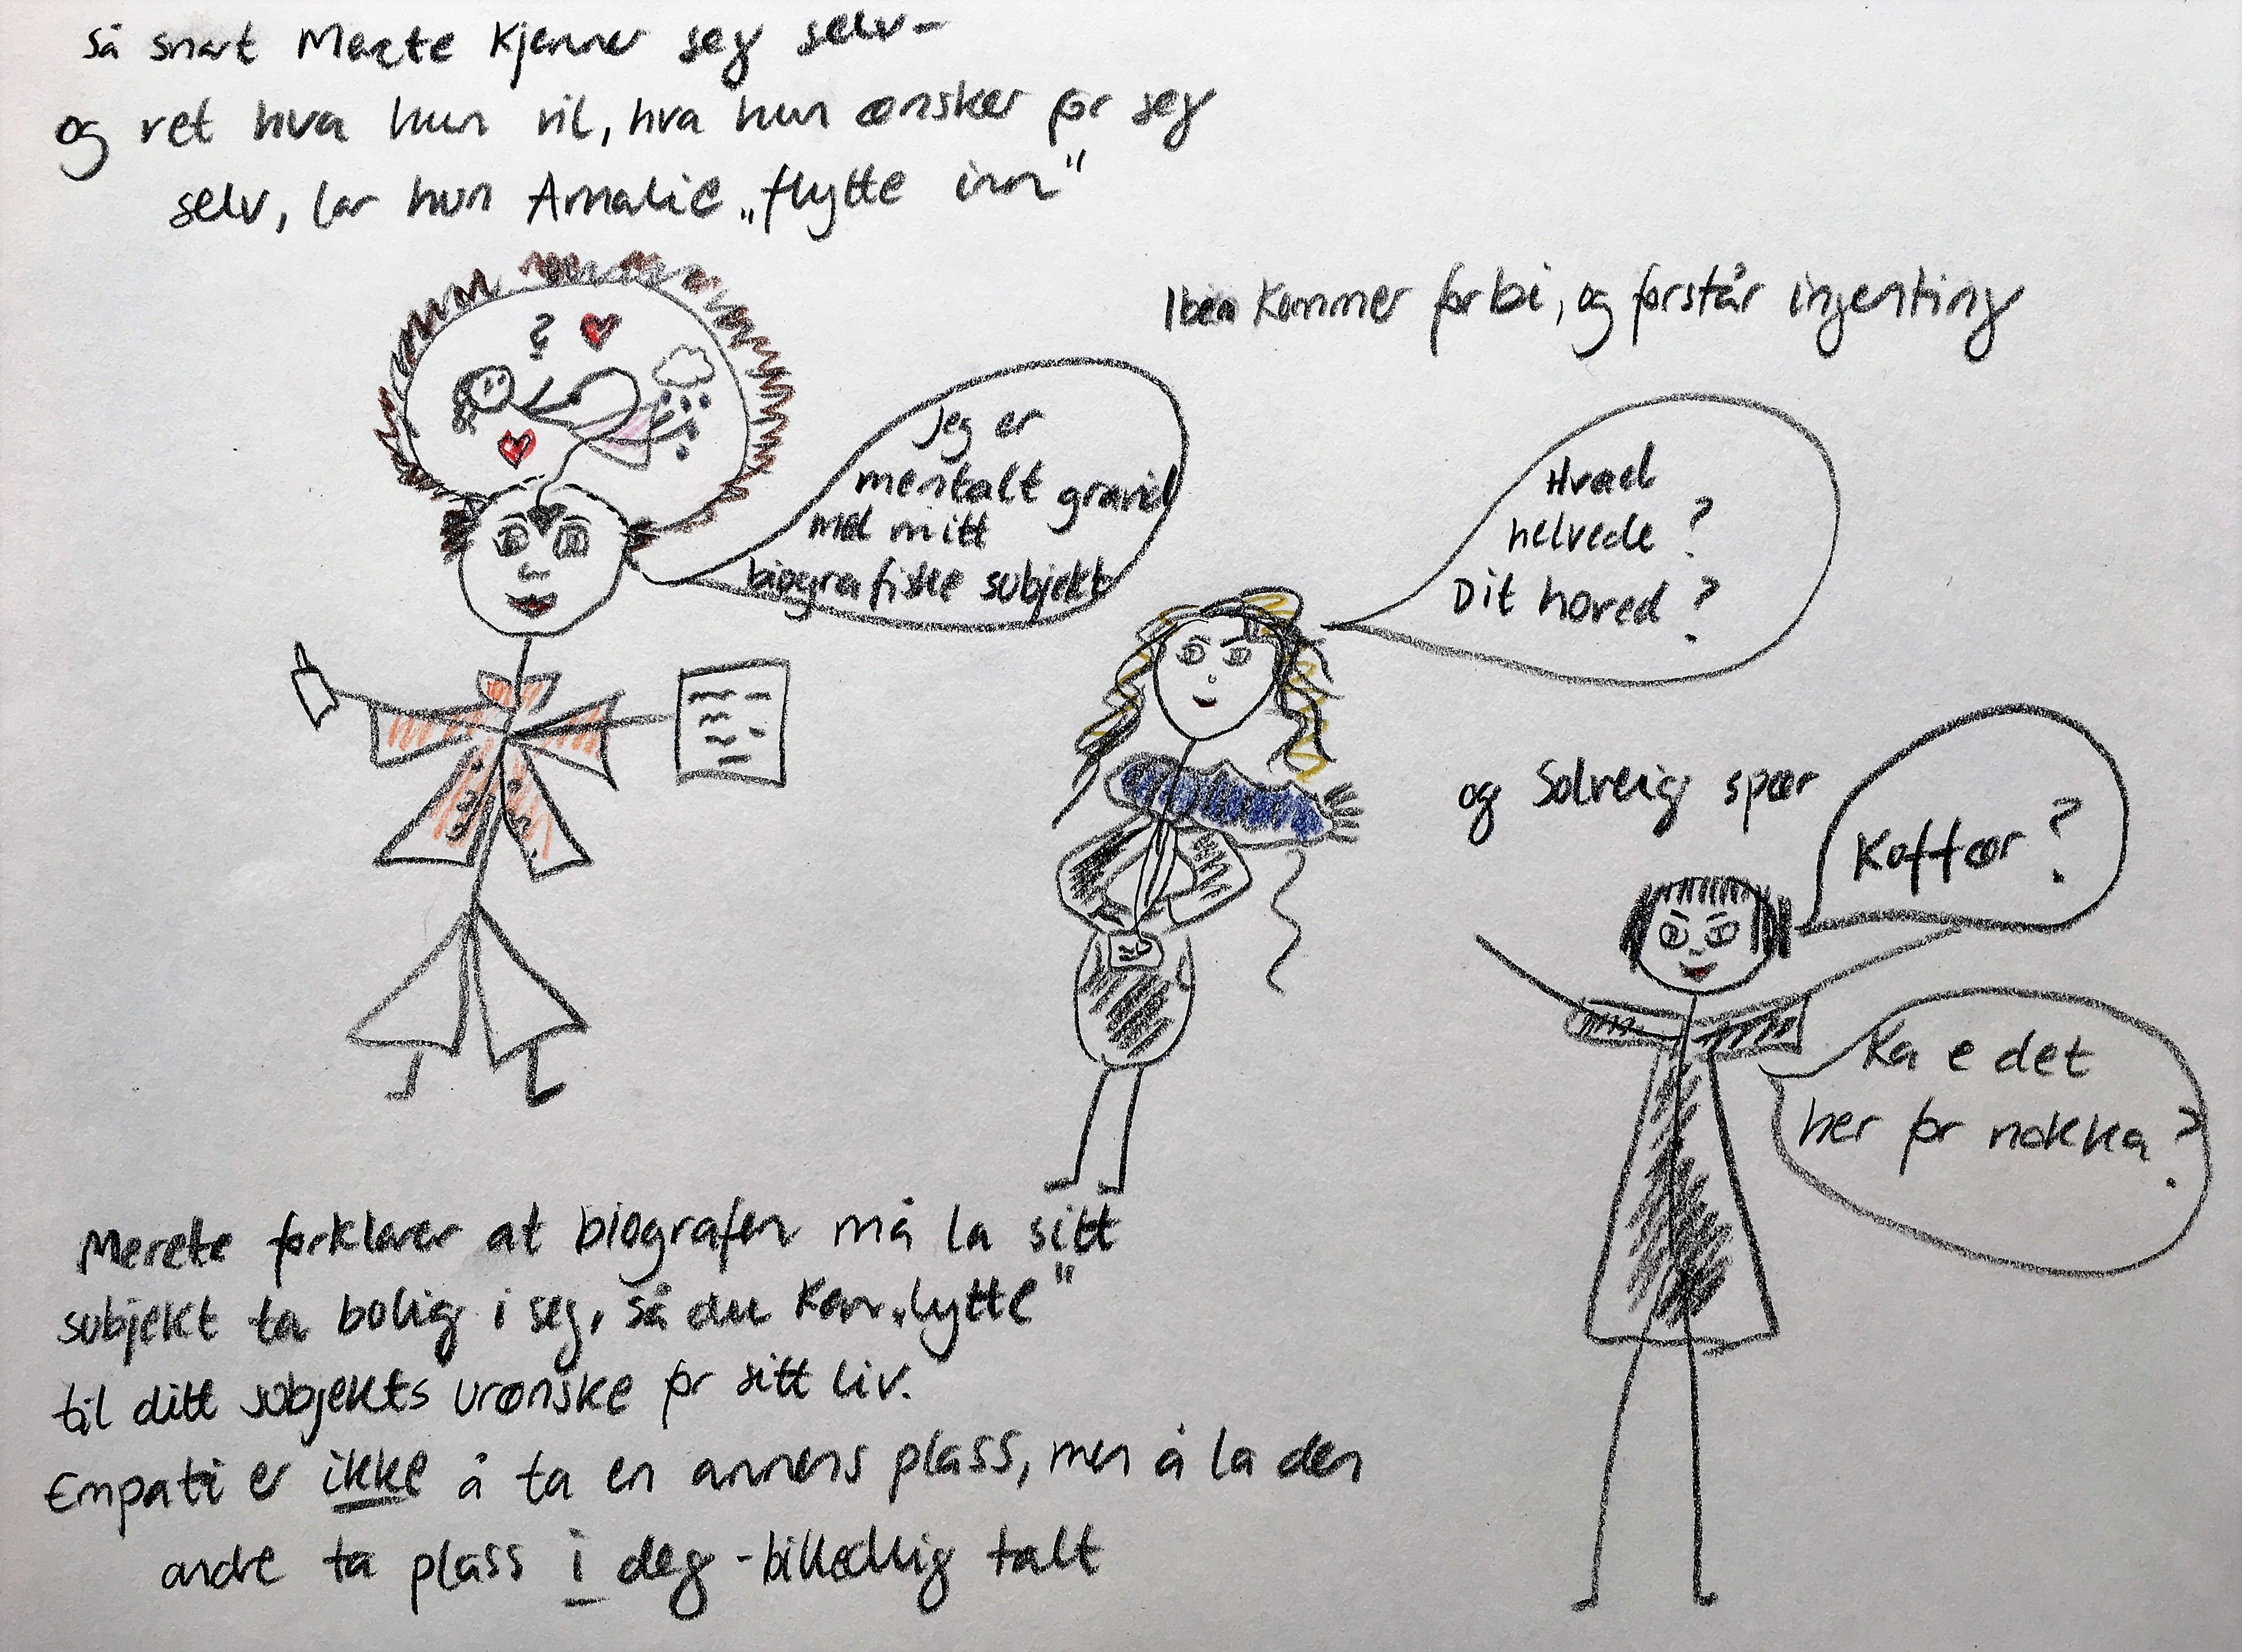 Så snart Merete kjenner seg selv-
og vet hva hun vil, hva hun ønsker for seg
selv, lar hun Amalie „flytte inn"
Iben kommer forbi, og forstår ingenting
?
Jeg er
mentalt gravid
med mitt
biografiske subjekt
Hvad
helvede ?
Dit hoved ?
og Solveig spør
Koffør ?
Ka e det
her for nokka ?
Merete forklarer at biografen må la sitt
subjekt ta bolig i seg, så du kan „lytte"
til ditt subjekts urønske for sitt liv.
Empati er ikke å ta en annens plass, men å la den
andre ta plass i deg - billedlig talt